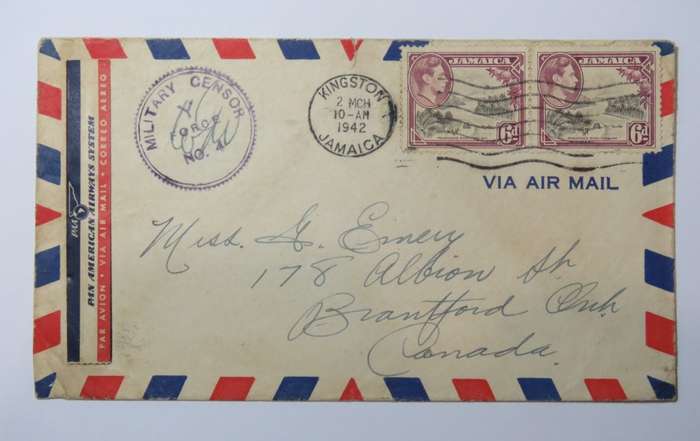 PAA
PAN AMERICAN AIRWAYS SYSTEM
PAR AVION · VIA AIR MAIL · CORREO AEREO
MILITARY CENSOR
FORCE
NO. 4
KINGSTON
2 MCH
10-AM
1942
JAMAICA
JAMAICA
6d
JAMAICA
6d
VIA AIR MAIL
Miss. G. Emery
178 Albion St.
Brantford Ont.
Canada.